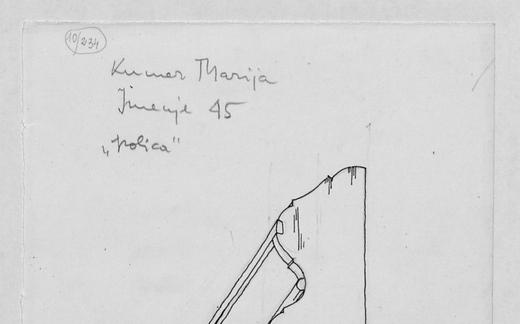 10/234
Kumer Marija
Imenje 45
„polica"